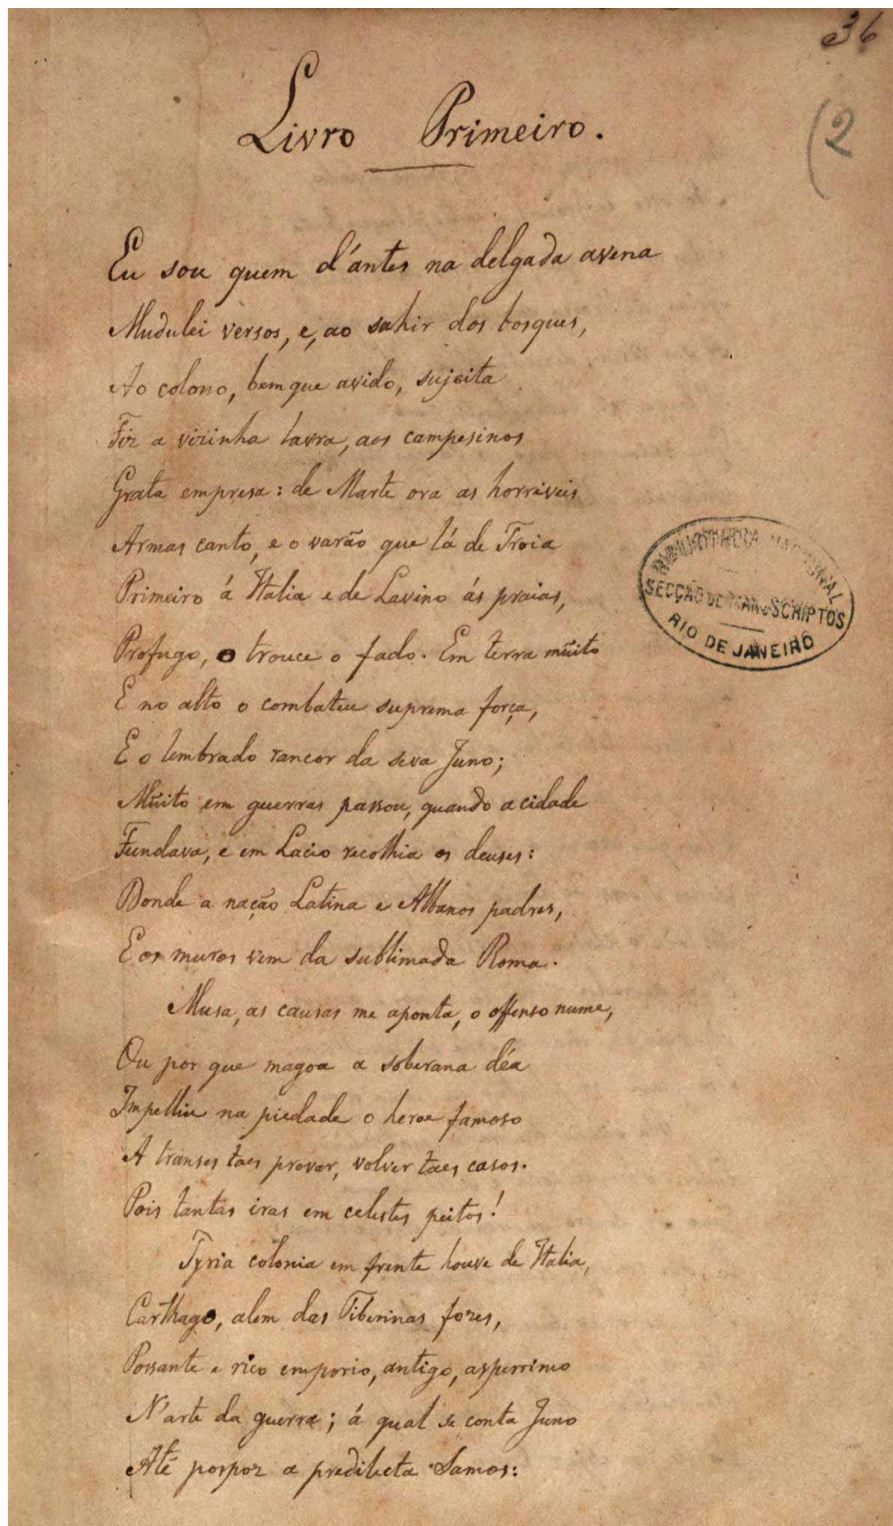 36
(2
Livro Primeiro.
Eu sou quem d'antes na delgada avena
Mudulei versos, e, ao sahir dos bosques,
Ao colono, bem que avido, sujeita
Fiz a vizinha lavra, aos campesinos
Grata empresa: de Marte ora as horriveis
Armas canto, e o varão que lá de Troia
Primeiro á Italia e de Lavino ás praias,
Profugo, o trouce o fado. Em terra mũito
E no alto o combateu suprema força,
E o lembrado rancor da seva Juno;
Mũito em guerras passou, quando a cidade
Fundava, e em Lacio recolhia os deuses:
Donde a nação Latina e Albanos padres,
E os muros vem da sublimada Roma.
Musa, as causas me aponta, o offenso nume,
Ou por que magoa a soberana déa
Impelliu na piedade o heroe famoso
A transes taes provar, volver taes casos.
Pois tantas iras em celestes peitos!
Tyria colonia em frente houve de Italia,
Carthago, alem das Tiberinas fozes,
Possante e rico emporio, antigo, asperrimo
N'arte da guerra; á qual se conta Juno
Até pospoz a predilecta Samos:
BIBLIOTHECA NACIONAL
SECÇÃO DE MANUSCRIPTOS
RIO DE JANEIRO